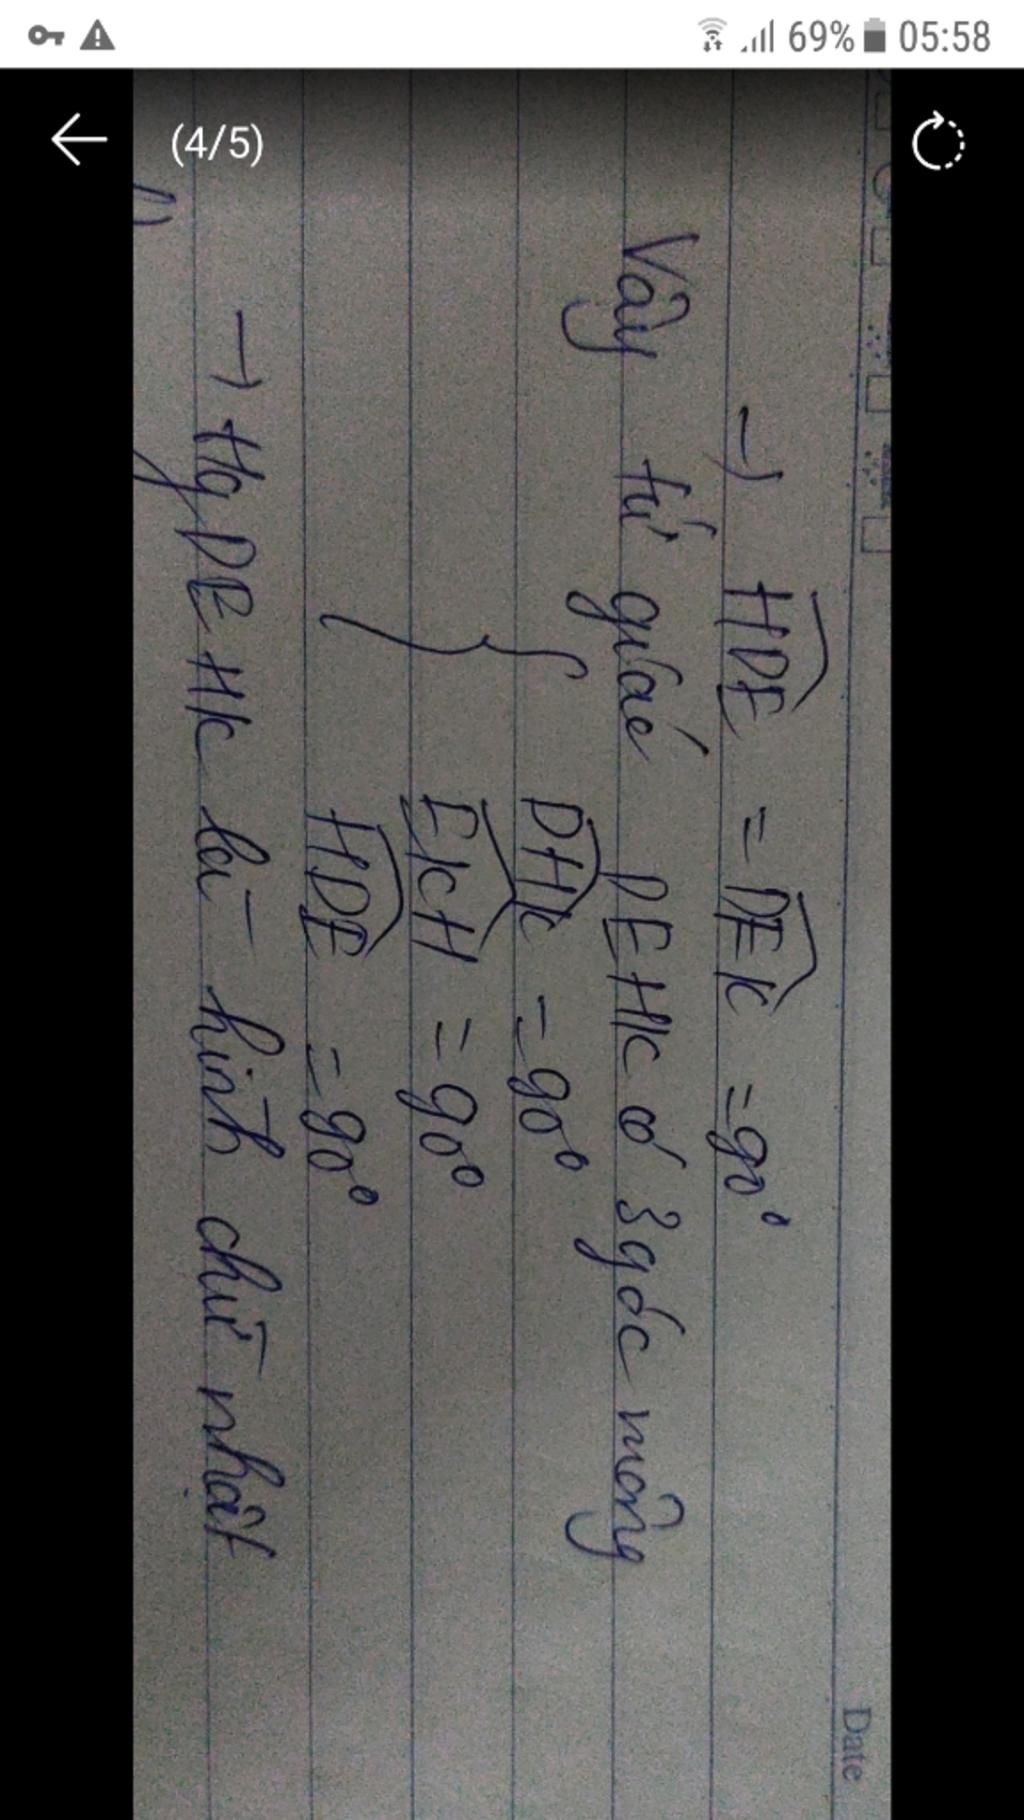 69% 05:58
(4/5)
Date
→ HDE = DEK = 90°
Vậy tứ giác DEHK có 3 góc vuông
DHK = 90°
EKH = 90°
HDE = 90°
→ Hg DEHK là hình chữ nhật